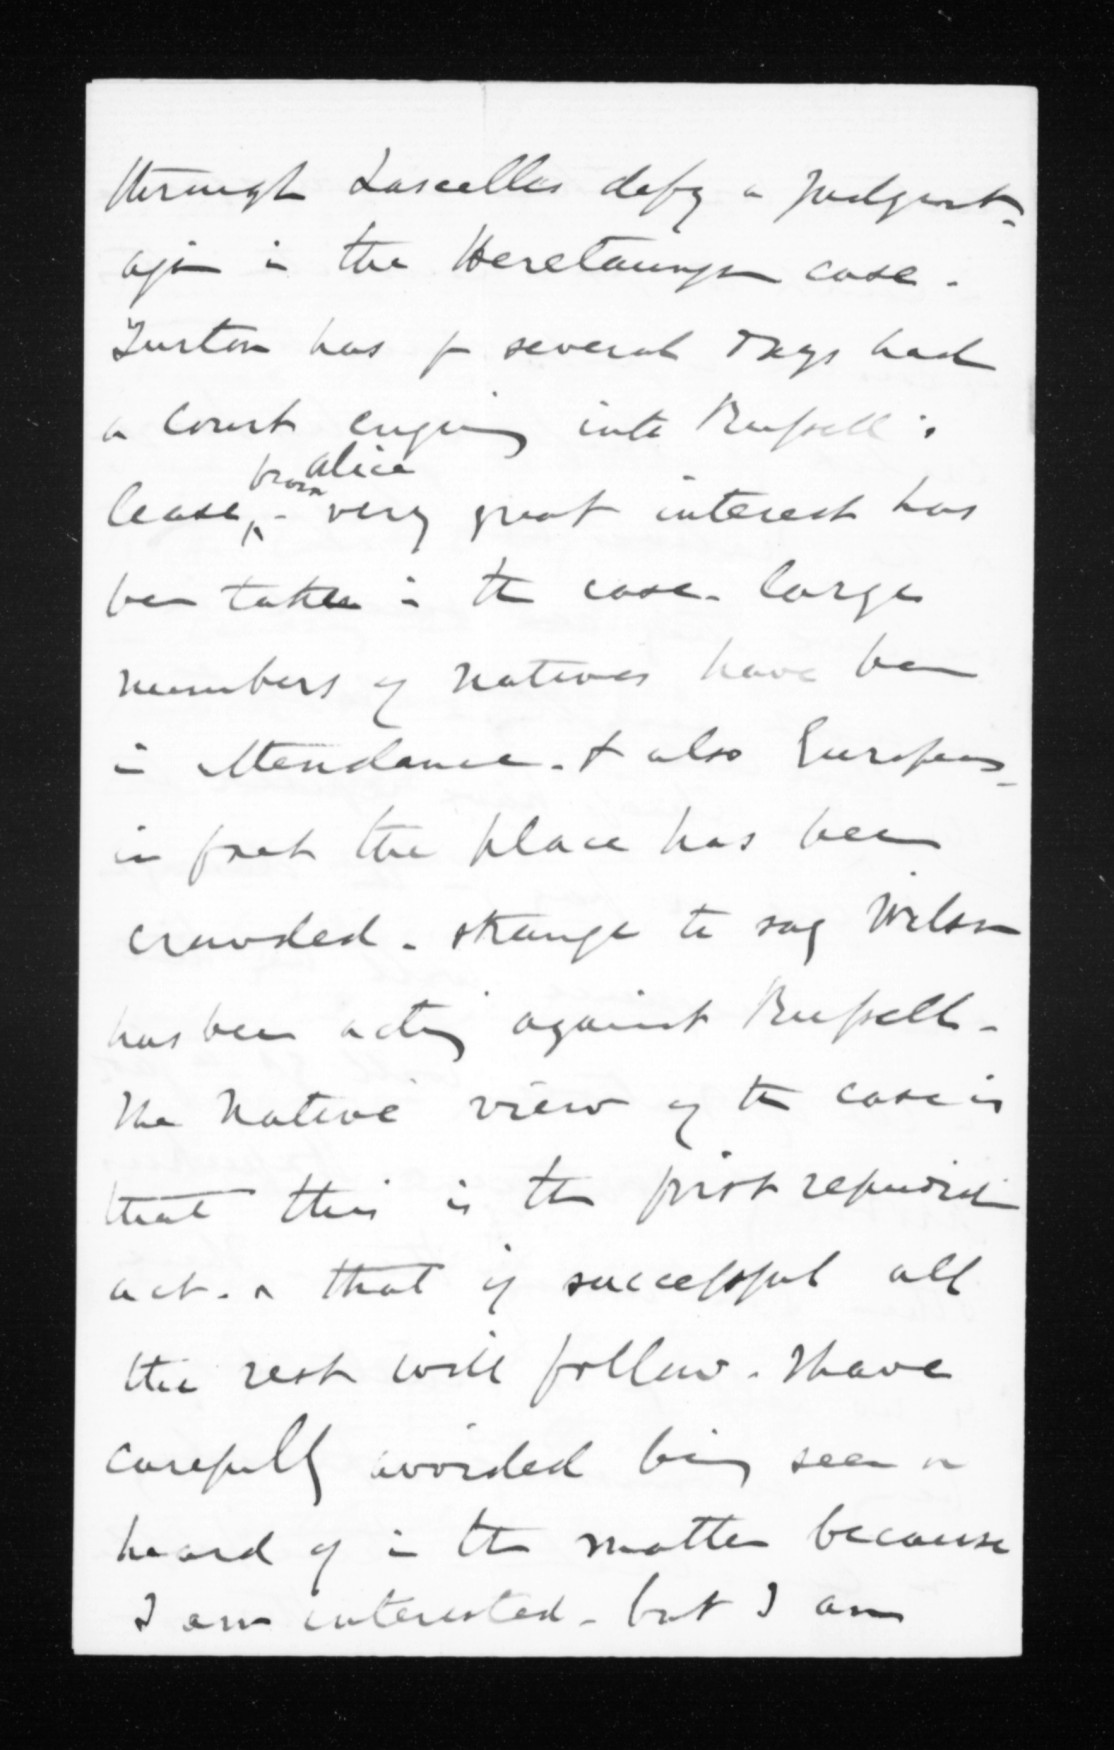 through Lascelles defy a judgment
again in the Heretaunga case.
Turton has for several days had
a court enquiring into Russell's
from Alice
lease, - very great interest has
been taken in the case. large
numbers of natives have been
in attendance. & also Europeans -
in fact the place has been
crowded. strange to say Wilson
has been acting against Russell -
The Native view of the case is
that this is the first repudiation
act. & that if successful all
the rest will follow. I have
carefully avoided being seen or
heard of in the matter because
I am interested - but I am